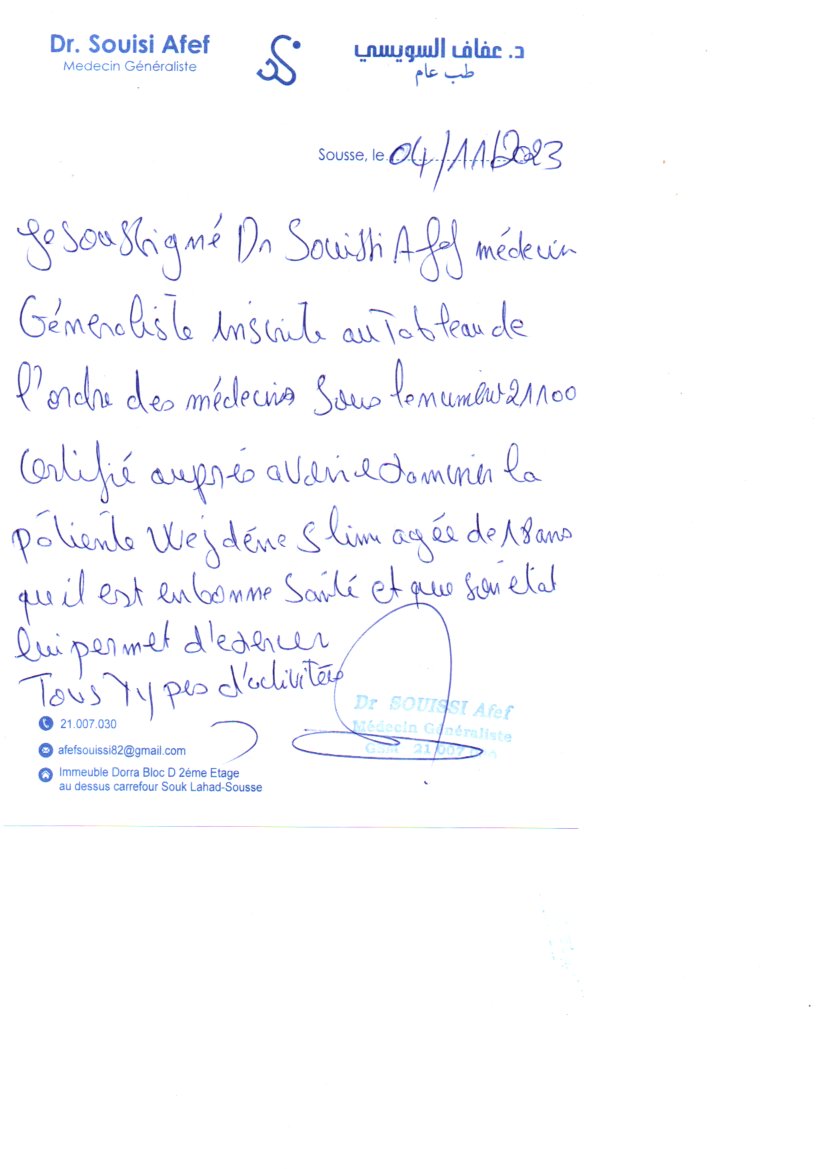 Dr. Souisi Afef
Medecin Généraliste
د. عفاف السويسي
طب عام
Sousse, le 04/11/2023
Je soussigné Dr Souissi Afef médecin
Géneraliste inscrite au Tableau de
l'ordre des médecins sous le numéro 21100
Certifié auprés avoir examiner la
patiente Wejdéne Slim agée de 18 ans
qu'il est en bonne santé et que son état
lui permet d'exercer
Tous Types d'activitées
Dr SOUISSI Afef
Médecin Généraliste
21.007.030
afefsouissi82@gmail.com
Immeuble Dorra Bloc D 2éme Etage
au dessus carrefour Souk Lahad-Sousse